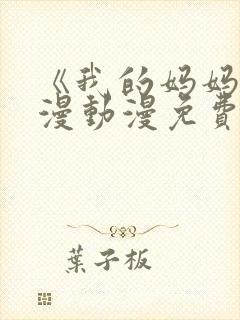 《我的妈妈
漫動漫免費
葉子板